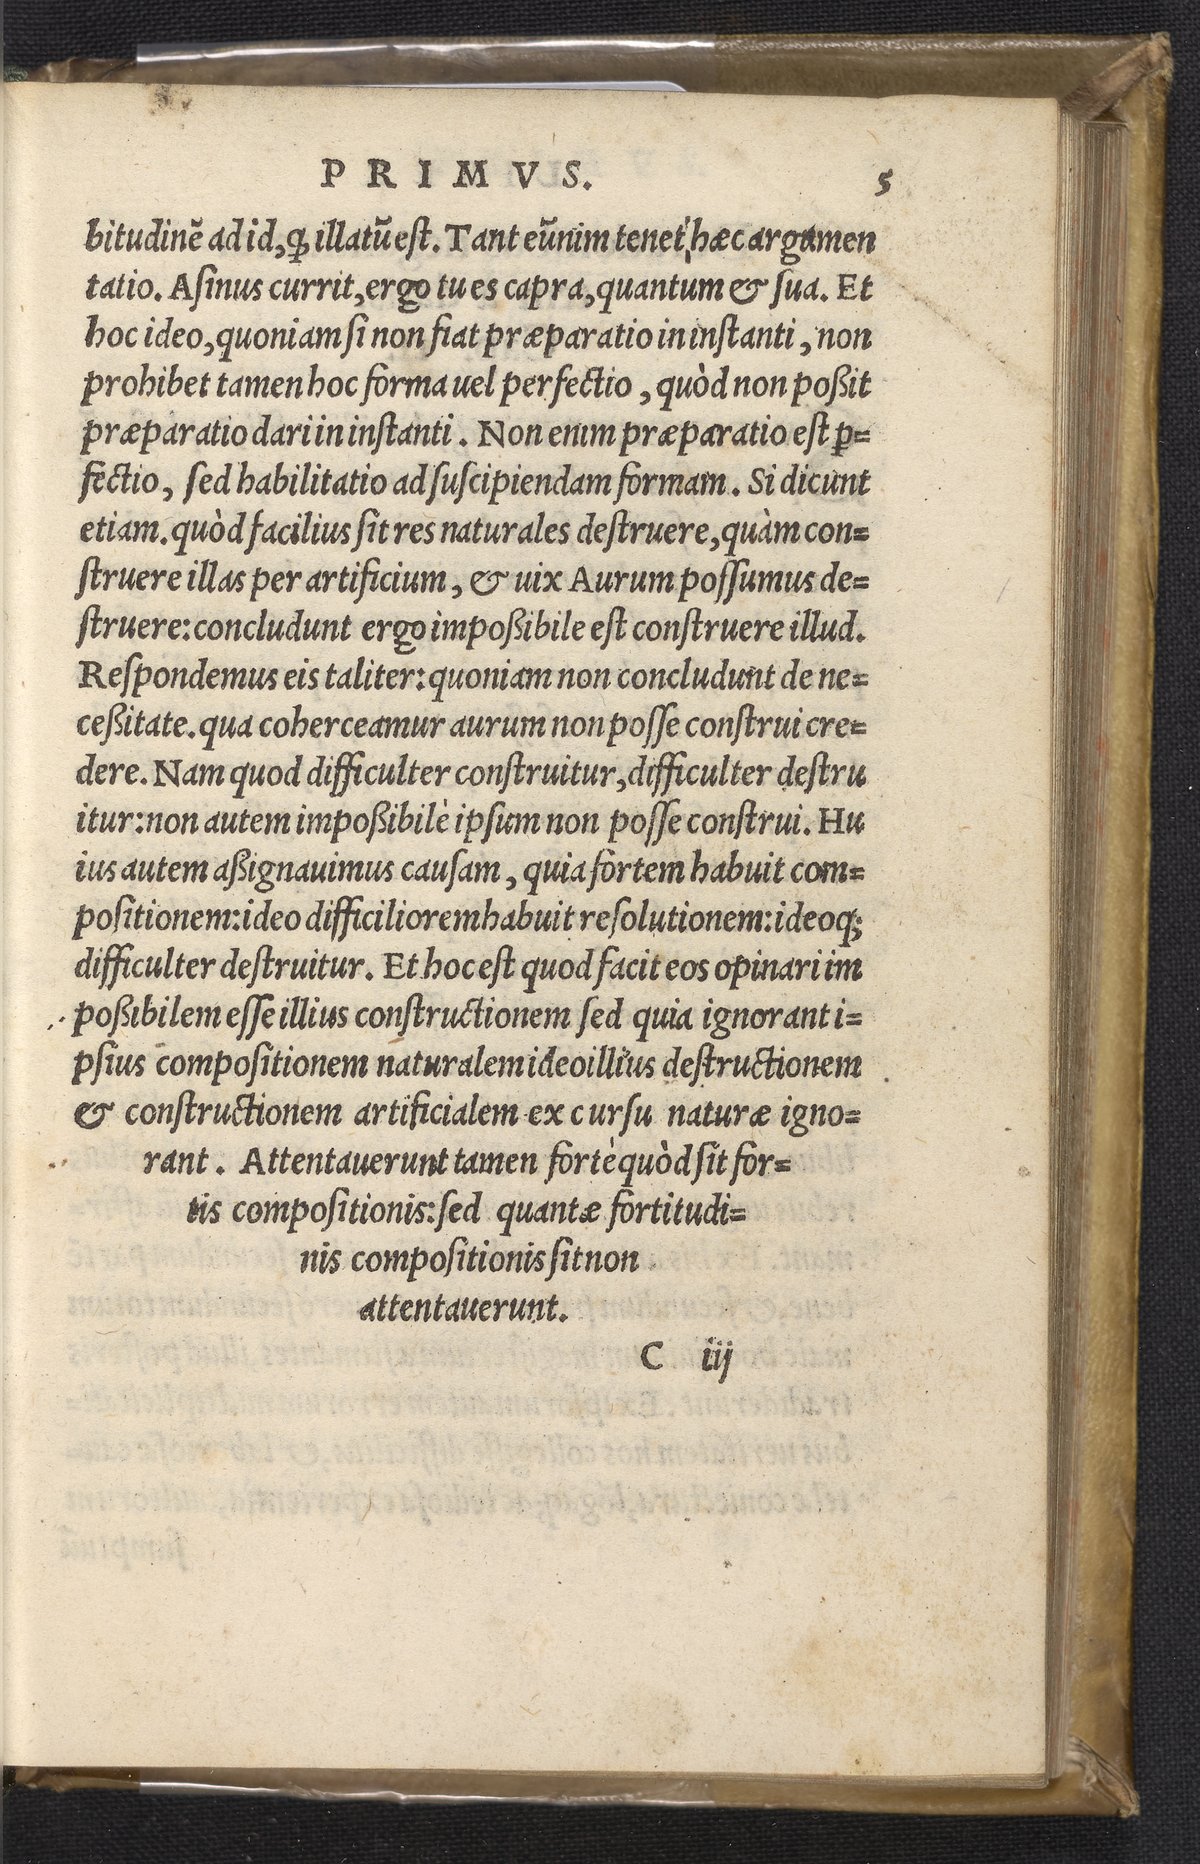 PRIMVS. 5
bitudinē ad id, ꝙ illatū est. Tant eūnim tenet hæc argumen
tatio. Asinus currit, ergo tu es capra, quantum & sua. Et
hoc ideo, quoniam si non fiat præparatio in instanti, non
prohibet tamen hoc forma uel perfectio, quòd non poßit
præparatio dari in instanti. Non enim præparatio est ꝑ=
fectio, sed habilitatio ad suscipiendam formam. Si dicunt
etiam. quòd facilius sit res naturales destruere, quàm con=
struere illas per artificium, & uix Aurum possumus de=
struere: concludunt ergo impoßibile est construere illud.
Respondemus eis taliter: quoniam non concludunt de ne=
ceßitate. qua coherceamur aurum non posse construi cre=
dere. Nam quod difficulter construitur, difficulter destru
itur: non autem impoßibilè ipsum non posse construi. Hu
ius autem aßignauimus causam, quia fortem habuit com=
positionem: ideo difficiliorem habuit resolutionem: ideoq;
difficulter destruitur. Et hoc est quod facit eos opinari im
poßibilem esse illius constructionem sed quia ignorant i=
psius compositionem naturalem ideo illius destructionem
& constructionem artificialem ex cursu naturæ igno=
rant. Attentauerunt tamen fortè quòd sit for=
tis compositionis: sed quantæ fortitudi=
nis compositionis sit non
attentauerunt.
C iij